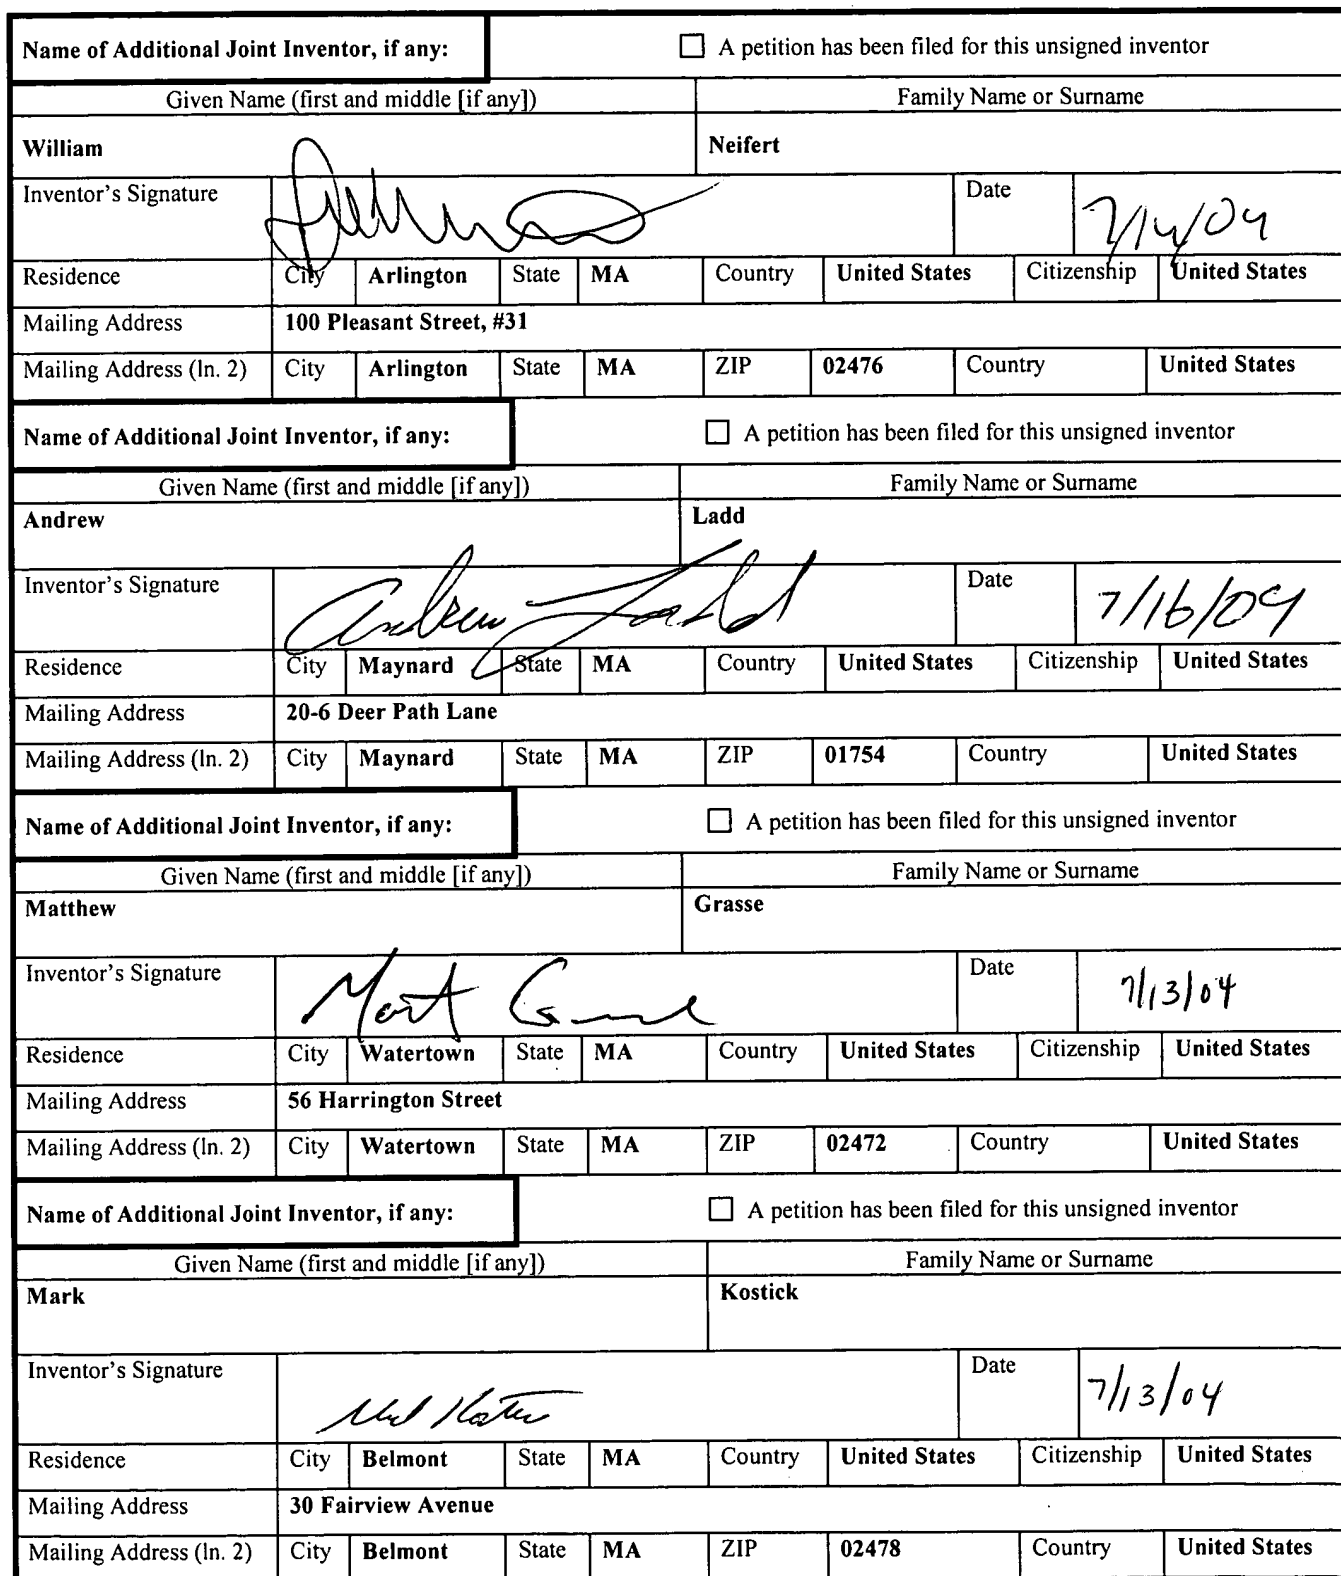 Name of Additional Joint Inventor, if any: ☐ A petition has been filed for this unsigned inventor
Given Name (first and middle [if any]) Family Name or Surname
William Neifert
Inventor's Signature Date 7/14/04
Residence City Arlington State MA Country United States Citizenship United States
Mailing Address 100 Pleasant Street, #31
Mailing Address (ln. 2) City Arlington State MA ZIP 02476 Country United States
Name of Additional Joint Inventor, if any: ☐ A petition has been filed for this unsigned inventor
Given Name (first and middle [if any]) Family Name or Surname
Andrew Ladd
Inventor's Signature Andrew Ladd Date 7/16/04
Residence City Maynard State MA Country United States Citizenship United States
Mailing Address 20-6 Deer Path Lane
Mailing Address (ln. 2) City Maynard State MA ZIP 01754 Country United States
Name of Additional Joint Inventor, if any: ☐ A petition has been filed for this unsigned inventor
Given Name (first and middle [if any]) Family Name or Surname
Matthew Grasse
Inventor's Signature Date 7/13/04
Residence City Watertown State MA Country United States Citizenship United States
Mailing Address 56 Harrington Street
Mailing Address (ln. 2) City Watertown State MA ZIP 02472 Country United States
Name of Additional Joint Inventor, if any: ☐ A petition has been filed for this unsigned inventor
Given Name (first and middle [if any]) Family Name or Surname
Mark Kostick
Inventor's Signature Date 7/13/04
Residence City Belmont State MA Country United States Citizenship United States
Mailing Address 30 Fairview Avenue
Mailing Address (ln. 2) City Belmont State MA ZIP 02478 Country United States